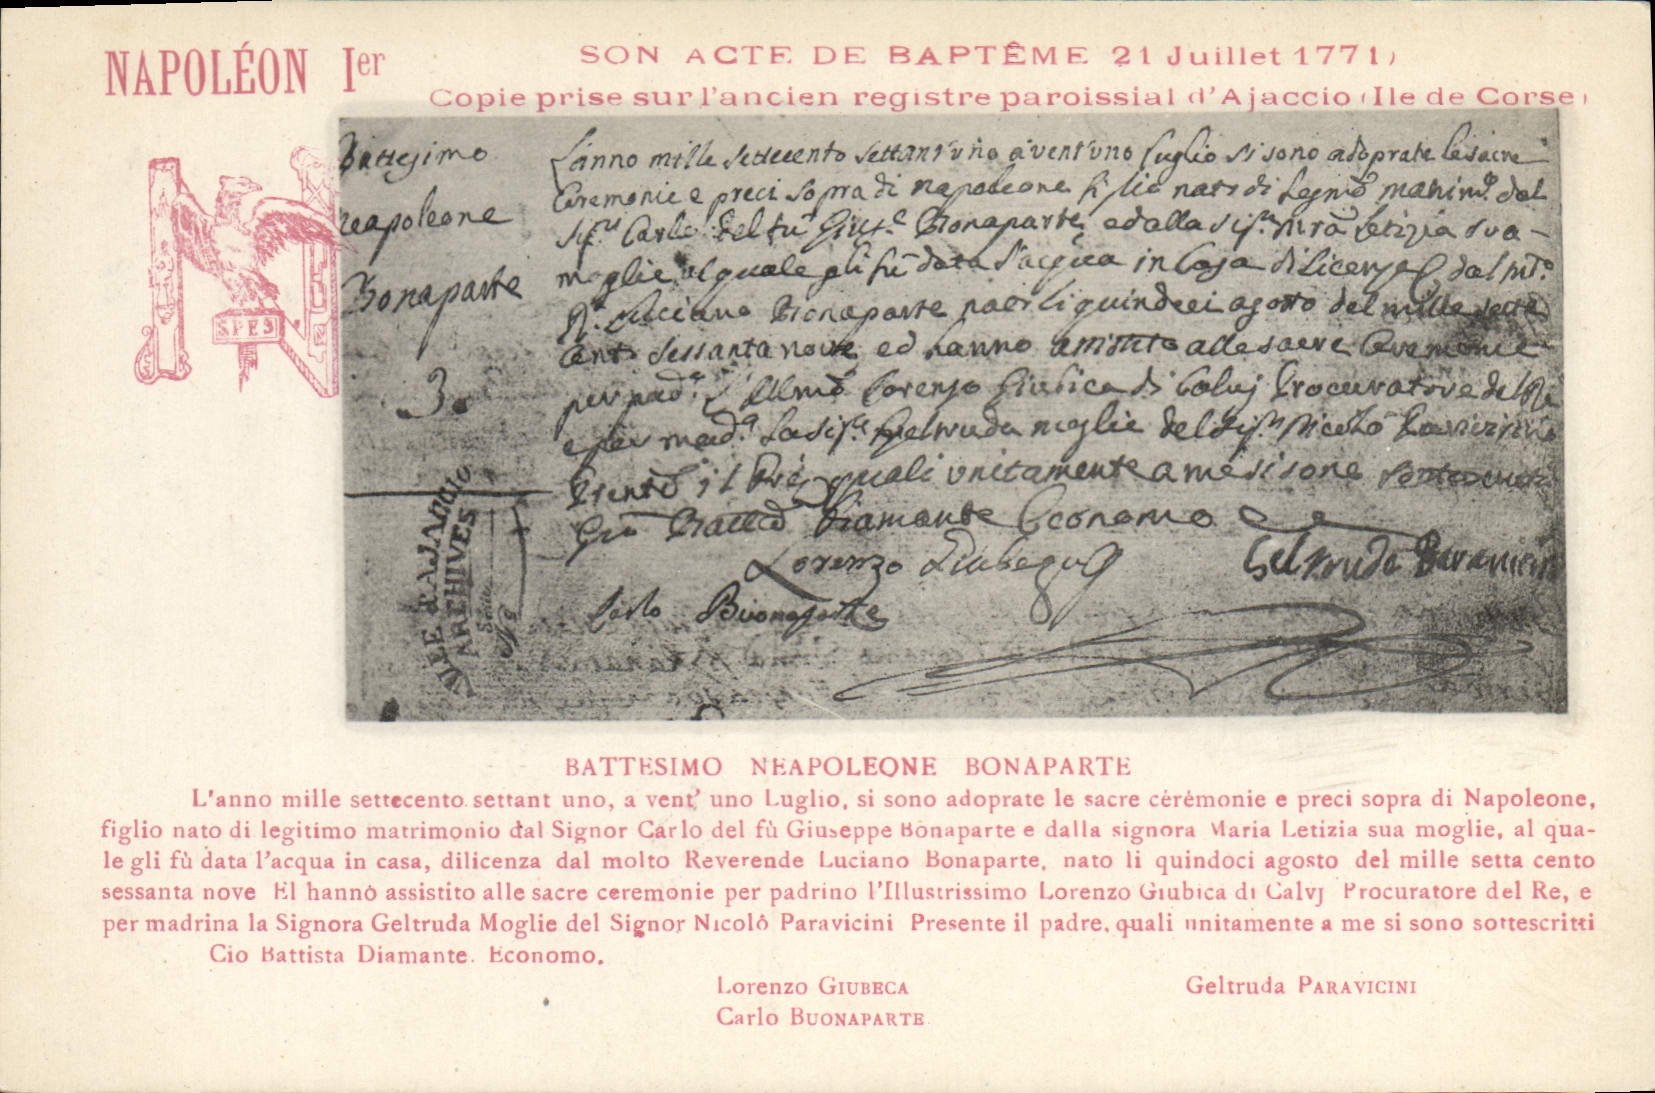 NAPOLÉON Ier
SON ACTE DE BAPTÊME 21 Juillet 1771)
Copie prise sur l'ancien registre paroissial d'Ajaccio (Ile de Corse)
SPES
Battesimo
neapoleone
Bonaparte
3.
L'anno mille settecento settant'uno a vent'uno luglio si sono adoprate le sacre
Ceremonie e preci sopra di napoleone figlio nato di legmo matrimo dal
Sigr Carlo del fu Giuse Bonaparte, ed alla Sigra Ma Letizia sua
moglie al quale gli fu data l'acqua in Casa di licenza dal mto
Rdo Luciano Bonaparte nato li quindeci agosto del mille sette
cento sessanta nove ed hanno assistito alle sacre Ceremonie
per pado l'Illmo Lorenzo Giubica di Calvj Procuratore del Re
e per mada la Sigra Geltruda moglie del Sigr Nicolò Paravicini
Presente il Pre, quali unitamente a me si sono
Gio Batta Diamante Economo
Lorenzo Giubega
Geltruda Paravicini
Carlo Buonaparte
VILLE D'AJACCIO
ARCHIVES
Série
No
BATTESIMO NEAPOLEONE BONAPARTE
L'anno mille settecento settant uno, a vent' uno Luglio, si sono adoprate le sacre cérémonie e preci sopra di Napoleone,
figlio nato di legitimo matrimonio dal Signor Carlo del fù Giuseppe Bonaparte e dalla signora Maria Letizia sua moglie, al qua-
le gli fù data l'acqua in casa, dilicenza dal molto Reverende Luciano Bonaparte, nato li quindoci agosto del mille setta cento
sessanta nove El hannò assistito alle sacre ceremonie per padrino l'Illustrissimo Lorenzo Giubica di Calvj Procuratore del Re, e
per madrina la Signora Geltruda Moglie del Signor Nicolô Paravicini Presente il padre, quali unitamente a me si sono sottescritti
Cio Battista Diamante. Economo.
Lorenzo GIUBECA
Geltruda PARAVICINI
Carlo BUONAPARTE